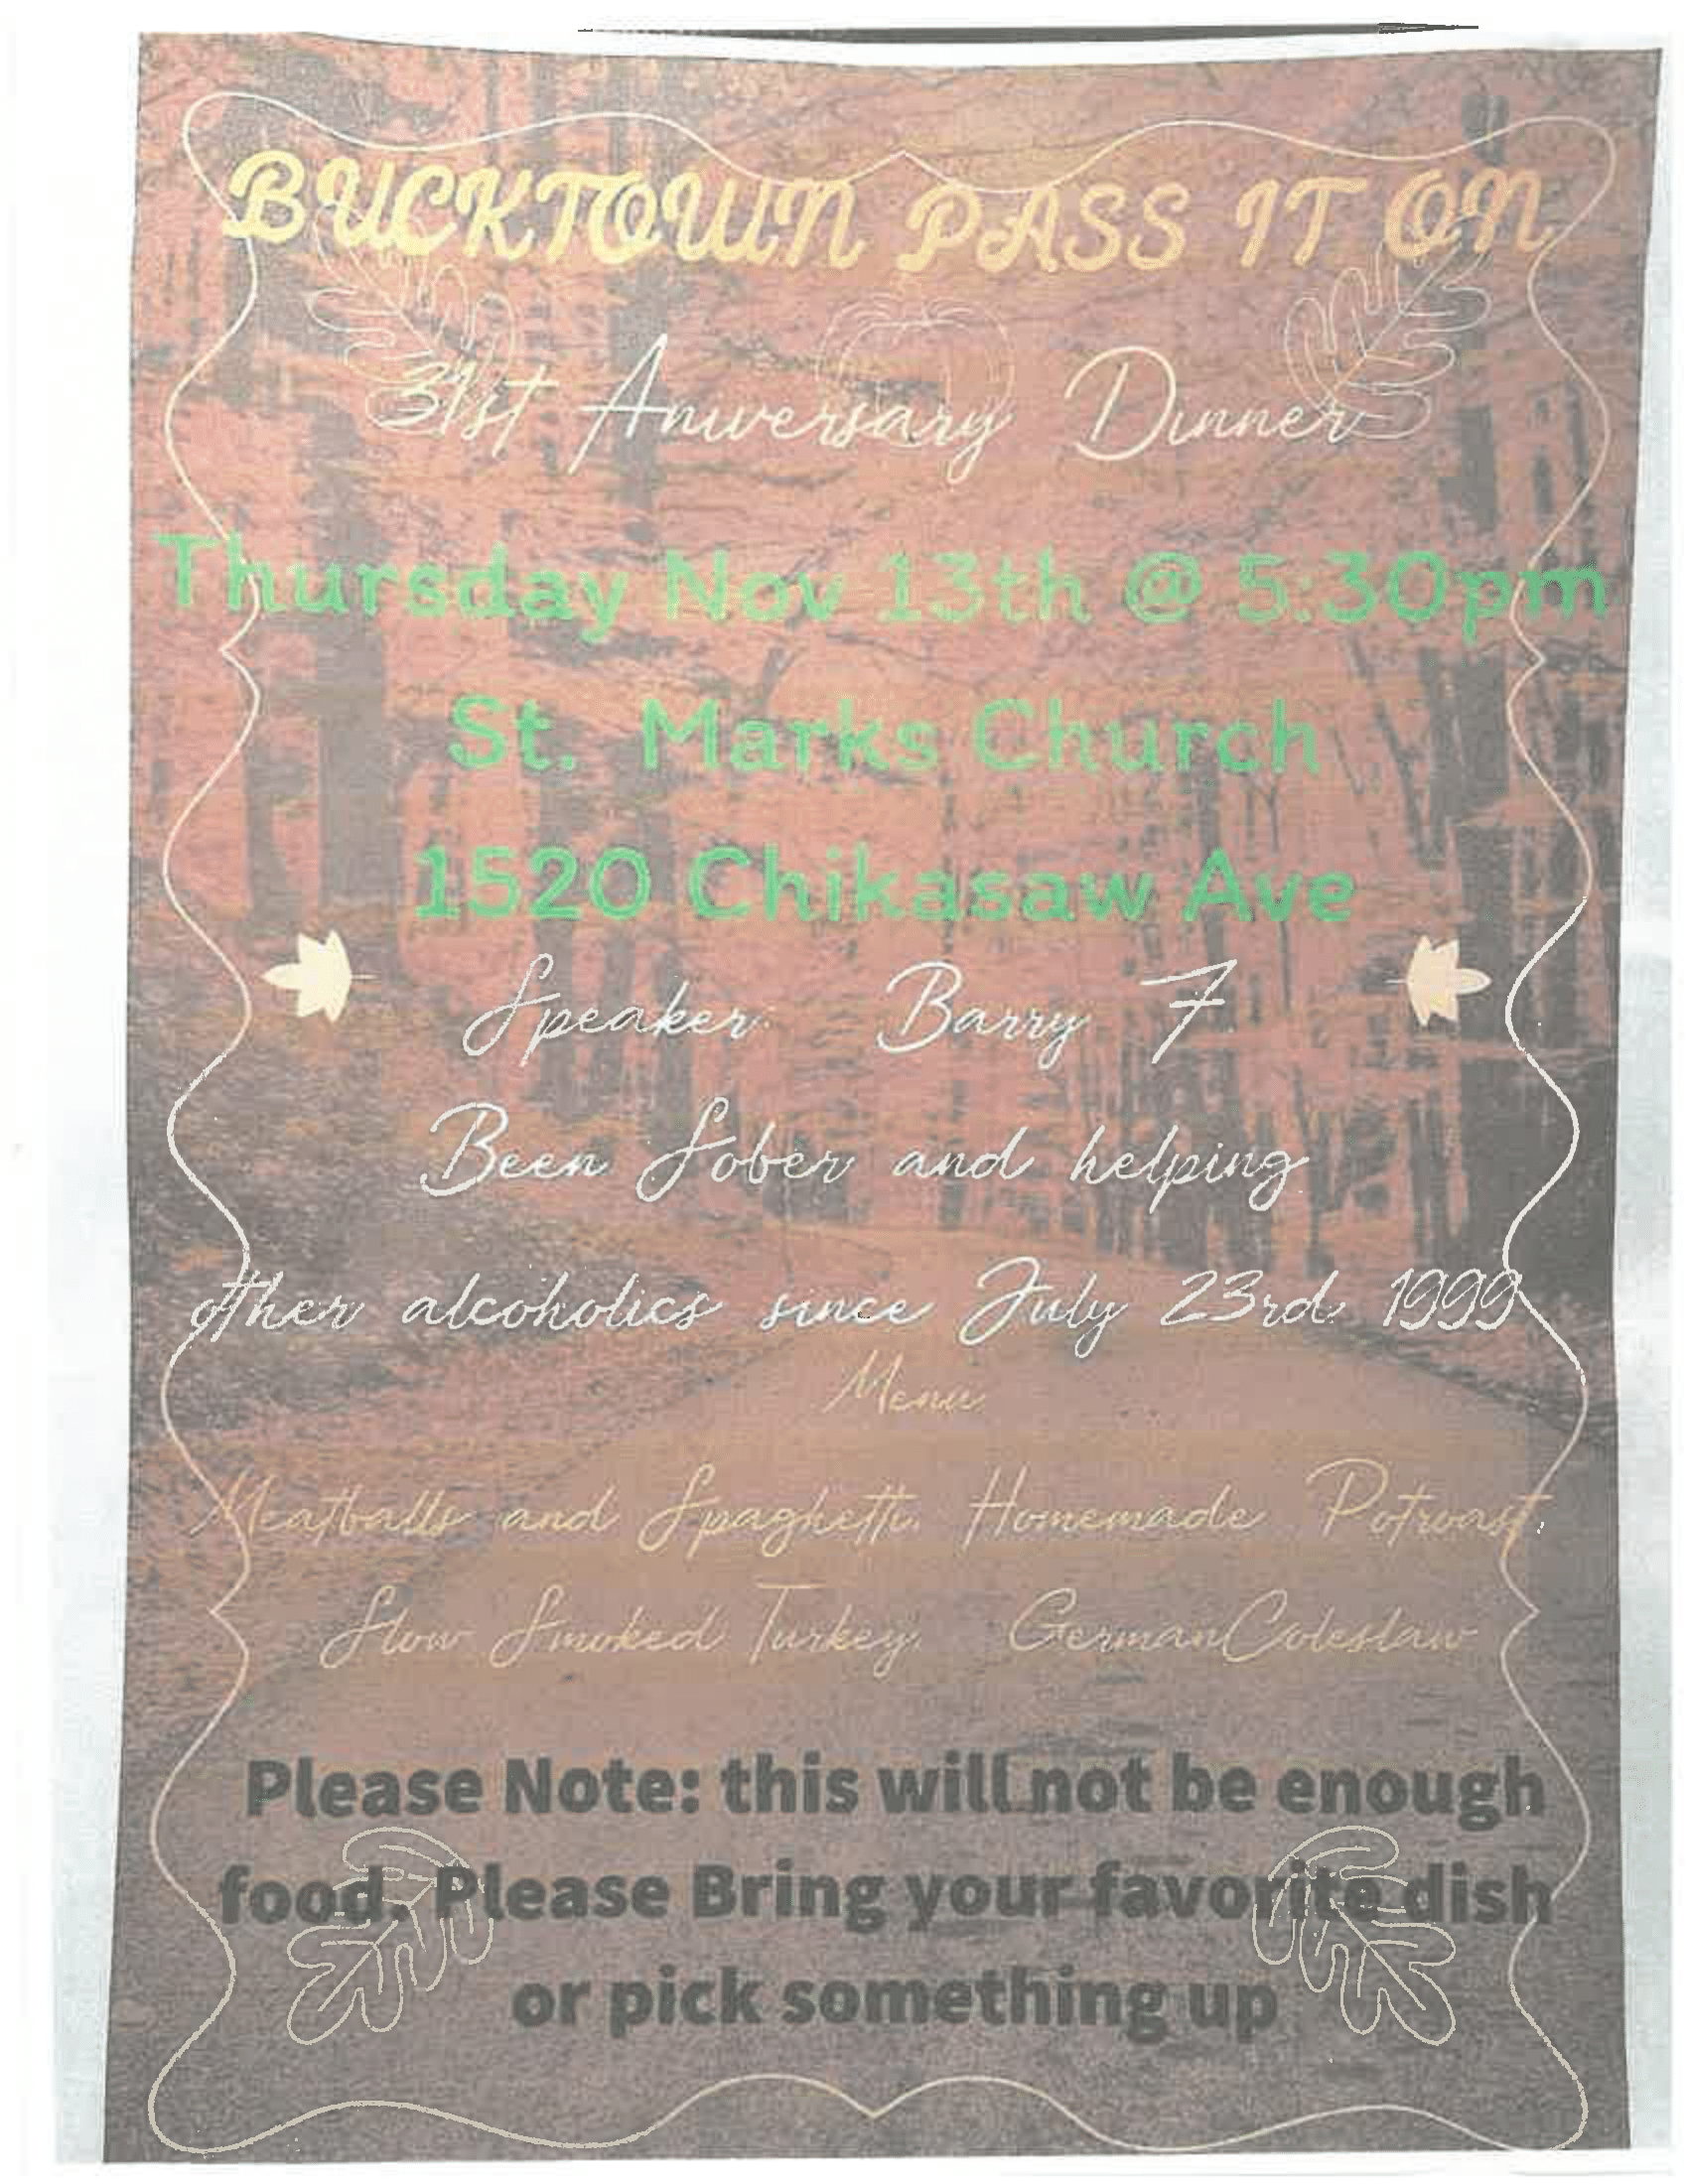 BUCKTOWN PASS IT ON
31st Aniversary Dinner
Thursday Nov 13th @ 5:30pm
St. Marks Church
1520 Chikasaw Ave
Speaker: Barry F
Been Sober and helping
other alcoholics since July 23rd 1999
Menu
Meatballs and Spaghetti, Homemade Potroast,
Slow Smoked Turkey, GermanColeslaw
Please Note: this will not be enough
food. Please Bring your favorite dish
or pick something up